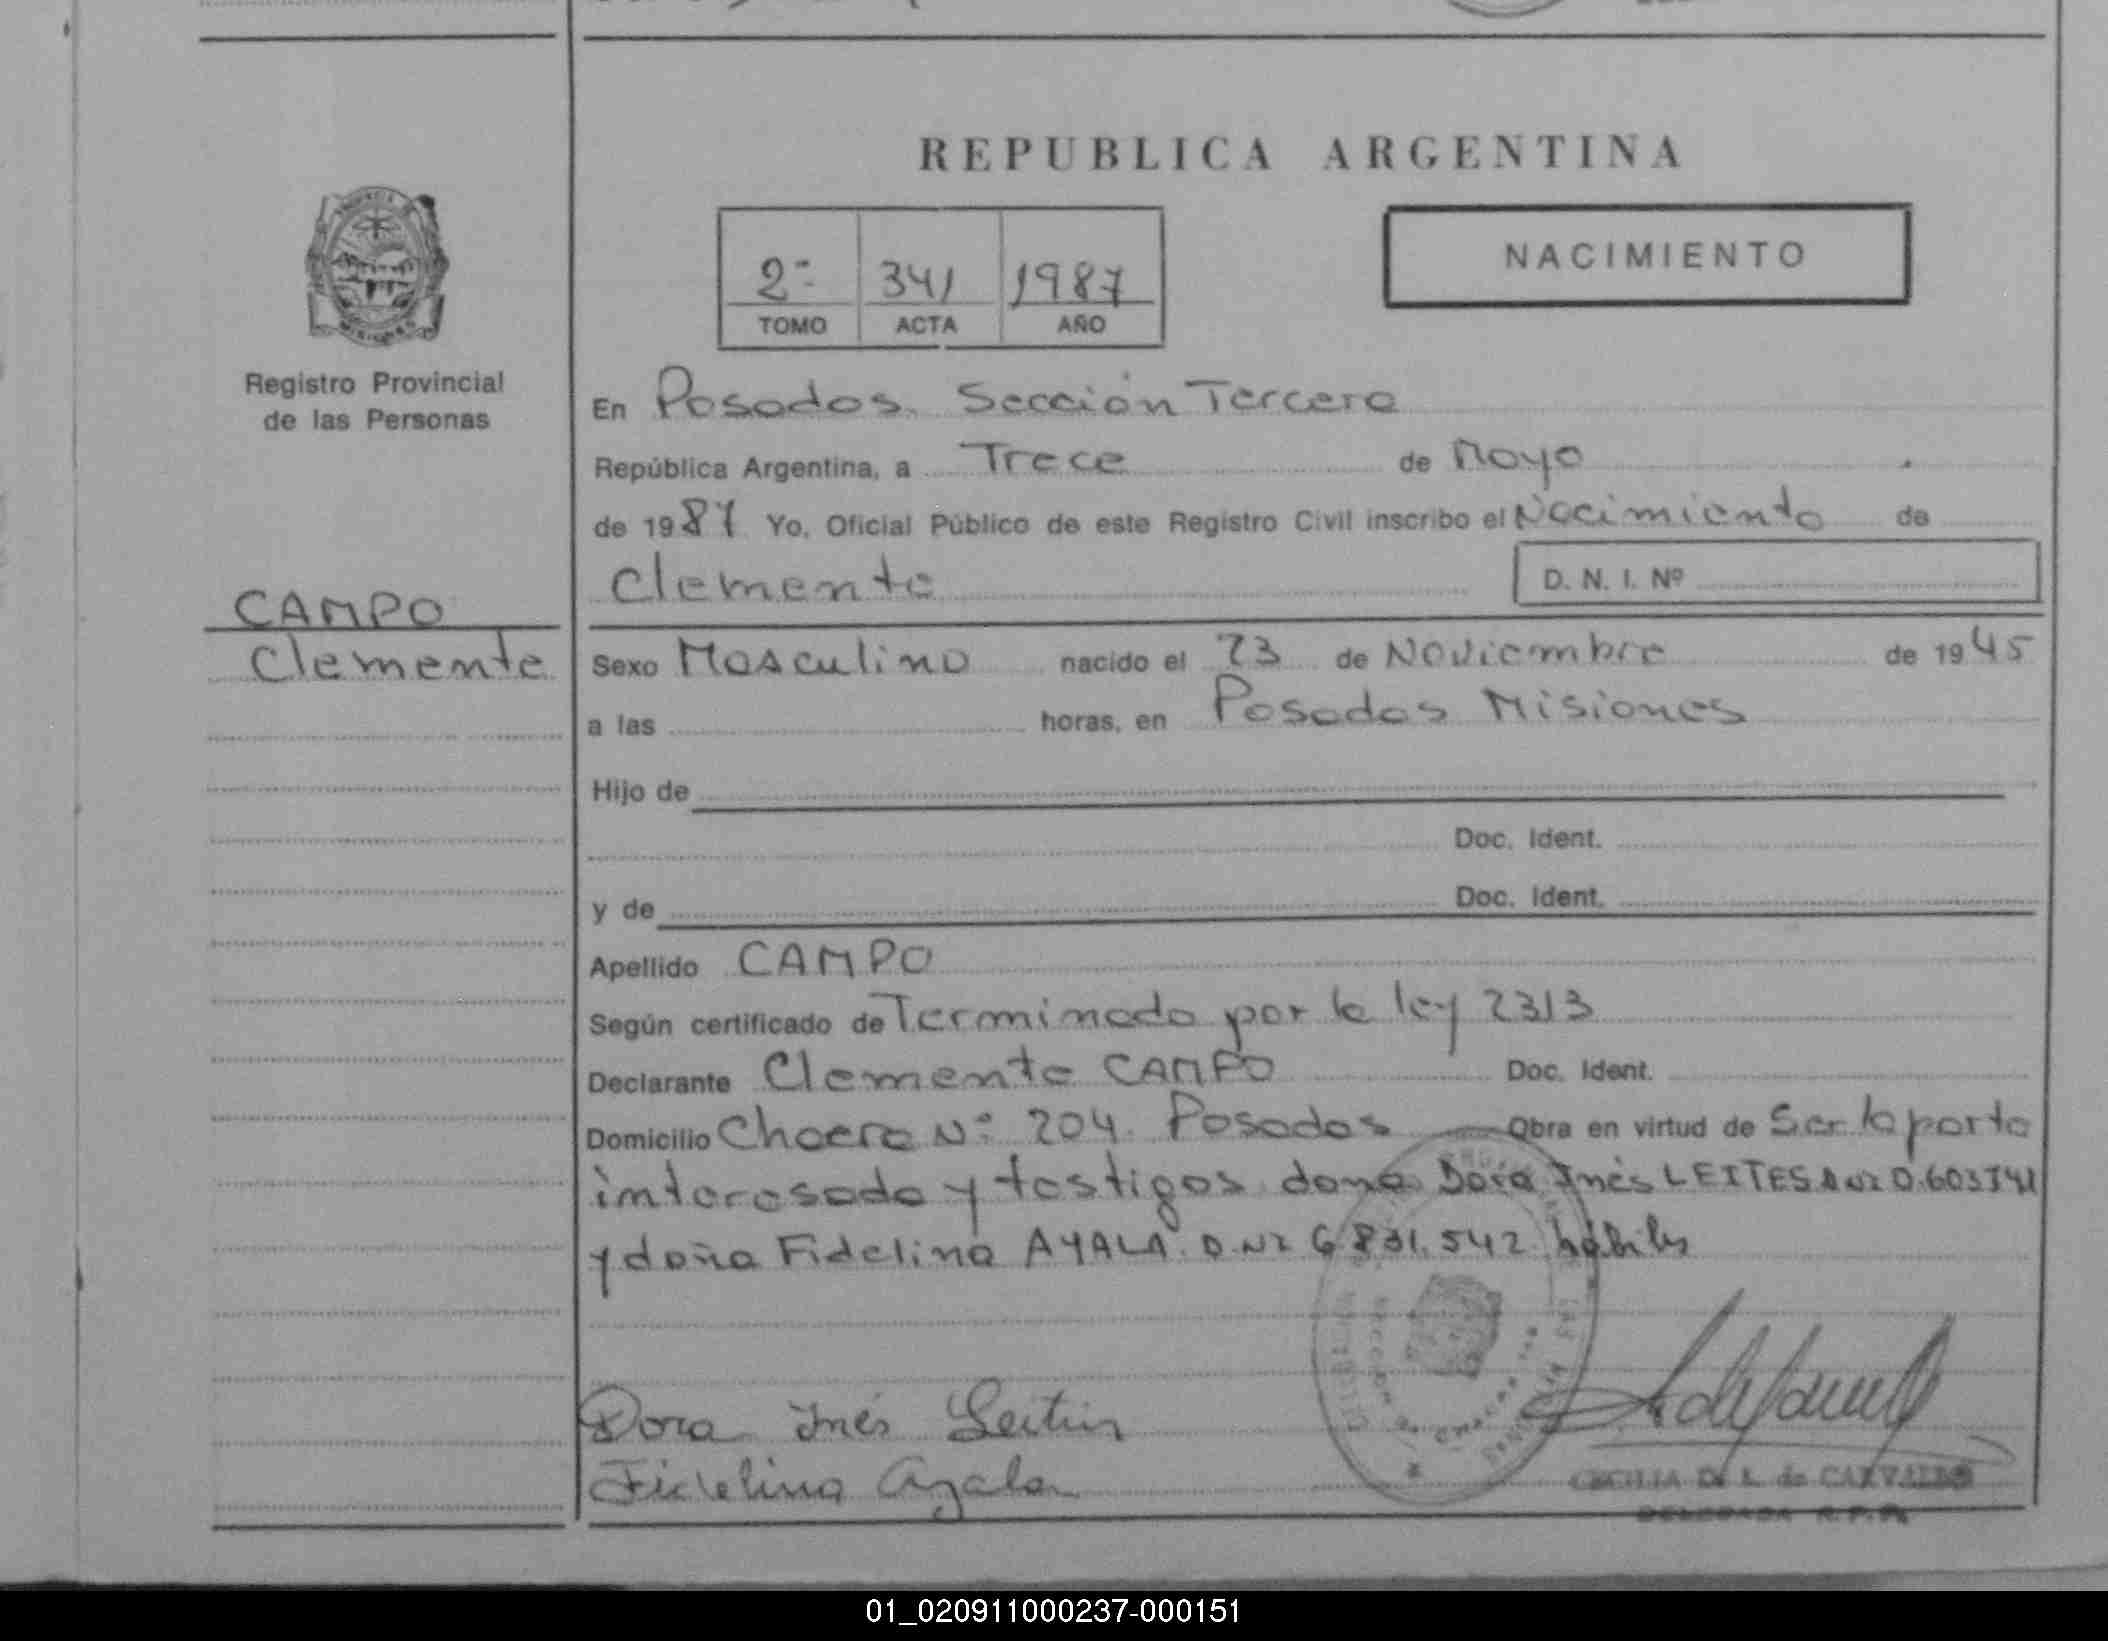 REPUBLICA ARGENTINA
2º 341 1987
TOMO ACTA AÑO
NACIMIENTO
Registro Provincial
de las Personas
En Posadas. Sección Tercera
República Argentina, a Trece de Mayo
de 1987 Yo, Oficial Público de este Registro Civil inscribo el Nacimiento de
Clemente D. N. I. Nº
CAMPO
Clemente
Sexo Masculino nacido el 23 de Noviembre de 1945
a las horas, en Posadas Misiones
Hijo de
Doc. Ident.
y de Doc. Ident.
Apellido CAMPO
Según certificado de Terminado por la ley 2313
Declarante Clemente CAMPO Doc. Ident.
Domicilio Nº 204. Posadas Obra en virtud de Ser la parte
interesada y testigos dona Dora Inés LEITES
y doña Fidelina AYALA. D.NI 6.831.542 hábiles
Dora Inés
Fidelina Ayala
CECILIA D. L. de CARVALLO
DELEGADA R.P.P.
01_020911000237-000151